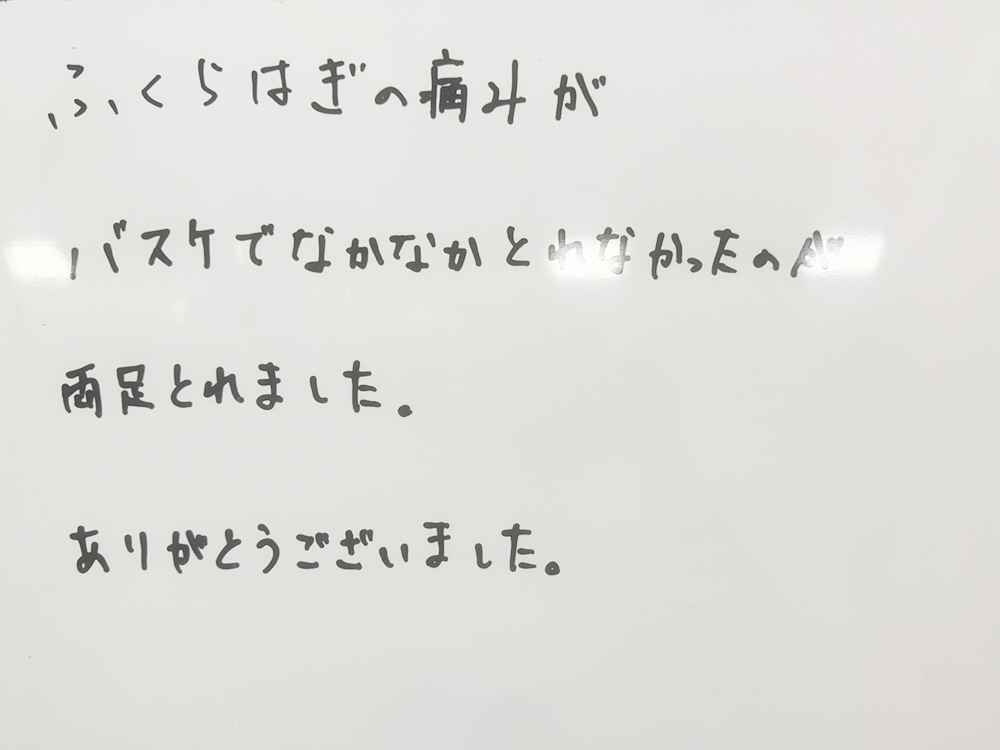 ふくらはぎの痛みが
バスケでなかなかとれなかったのが
両足とれました。
ありがとうございました。